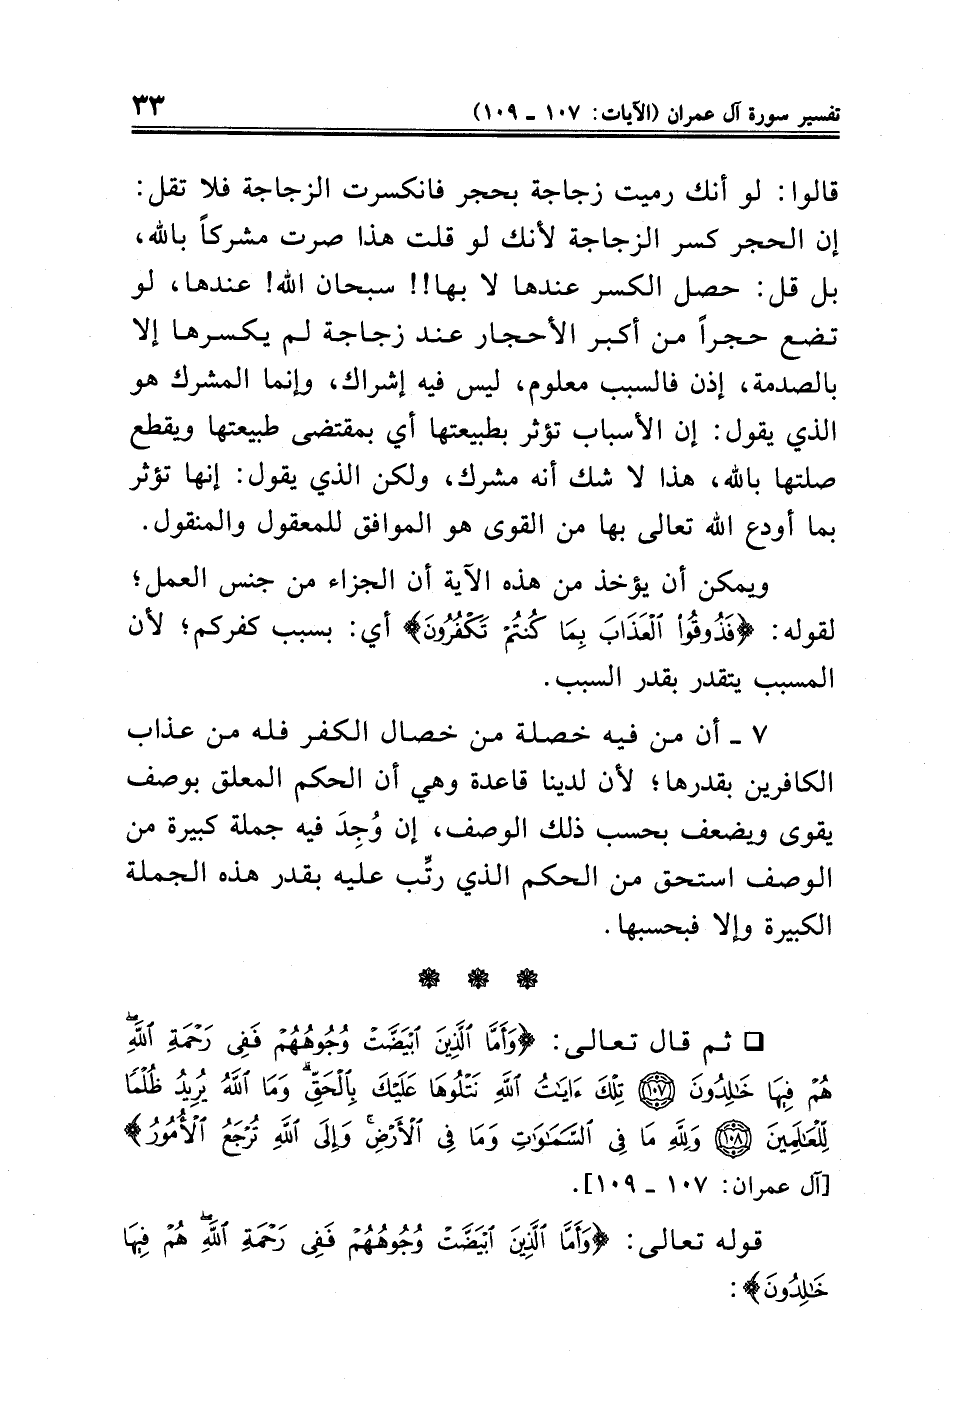 تفسير سورة آل عمران (الآيات: ١٠٧ ـ ١٠٩) ٣٣
قالوا: لو أنك رميت زجاجة بحجر فانكسرت الزجاجة فلا تقل:
إن الحجر كسر الزجاجة لأنك لو قلت هذا صرت مشركاً بالله،
بل قل: حصل الكسر عندها لا بها!! سبحان الله! عندها، لو
تضع حجراً من أكبر الأحجار عند زجاجة لم يكسرها إلا
بالصدمة، إذن فالسبب معلوم، ليس فيه إشراك، وإنما المشرك هو
الذي يقول: إن الأسباب تؤثر بطبيعتها أي بمقتضى طبيعتها ويقطع
صلتها بالله، هذا لا شك أنه مشرك، ولكن الذي يقول: إنها تؤثر
بما أودع الله تعالى بها من القوى هو الموافق للمعقول والمنقول.
ويمكن أن يؤخذ من هذه الآية أن الجزاء من جنس العمل؛
لقوله: ﴿فَذُوقُواْ ٱلْعَذَابَ بِمَا كُنتُمْ تَكْفُرُونَ﴾ أي: بسبب كفركم؛ لأن
المسبب يتقدر بقدر السبب.
٧ ـ أن من فيه خصلة من خصال الكفر فله من عذاب
الكافرين بقدرها؛ لأن لدينا قاعدة وهي أن الحكم المعلق بوصف
يقوى ويضعف بحسب ذلك الوصف، إن وُجِدَ فيه جملة كبيرة من
الوصف استحق من الحكم الذي رتِّب عليه بقدر هذه الجملة
الكبيرة وإلا فبحسبها.
❋ ❋ ❋
❑ ثم قال تعالى: ﴿وَأَمَّا ٱلَّذِينَ ٱبْيَضَّتْ وُجُوهُهُمْ فَفِى رَحْمَةِ ٱللَّهِۖ
هُمْ فِيهَا خَٰلِدُونَ ١٠٧ تِلْكَ ءَايَٰتُ ٱللَّهِ نَتْلُوهَا عَلَيْكَ بِٱلْحَقِّۗ وَمَا ٱللَّهُ يُرِيدُ ظُلْمًا
لِّلْعَٰلَمِينَ ١٠٨ وَلِلَّهِ مَا فِى ٱلسَّمَٰوَٰتِ وَمَا فِى ٱلْأَرْضِۚ وَإِلَى ٱللَّهِ تُرْجَعُ ٱلْأُمُورُ﴾
[آل عمران: ١٠٧ ـ ١٠٩].
قوله تعالى: ﴿وَأَمَّا ٱلَّذِينَ ٱبْيَضَّتْ وُجُوهُهُمْ فَفِى رَحْمَةِ ٱللَّهِۖ هُمْ فِيهَا
خَٰلِدُونَ﴾: